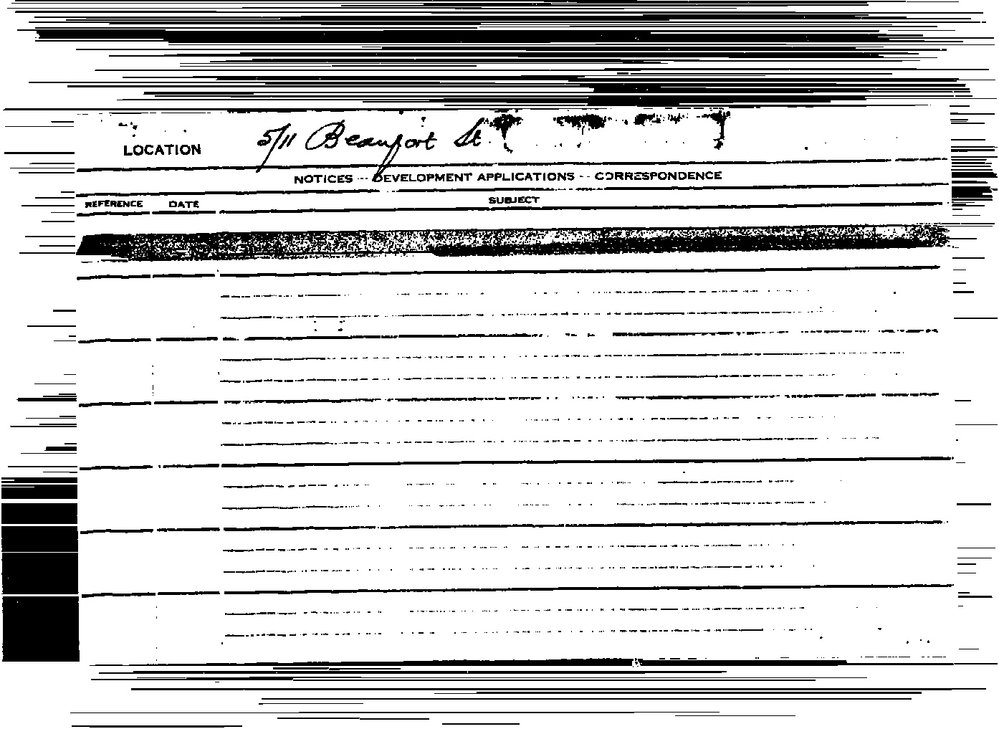 LOCATION 5/11 Beaufort St
NOTICES -- DEVELOPMENT APPLICATIONS -- CORRESPONDENCE
REFERENCE DATE SUBJECT